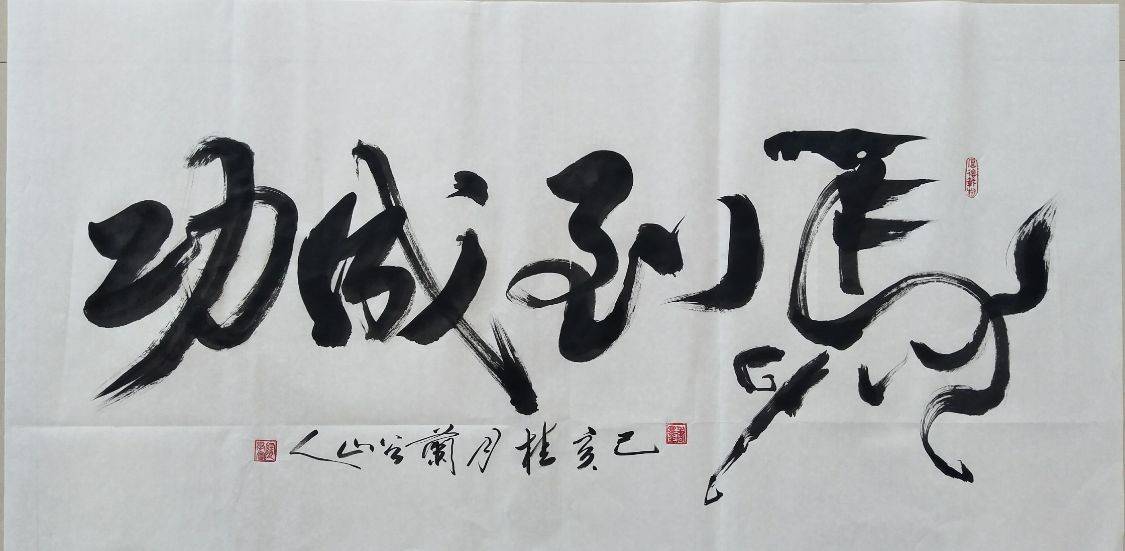 馬到成功
己亥桂月蘭谷山人